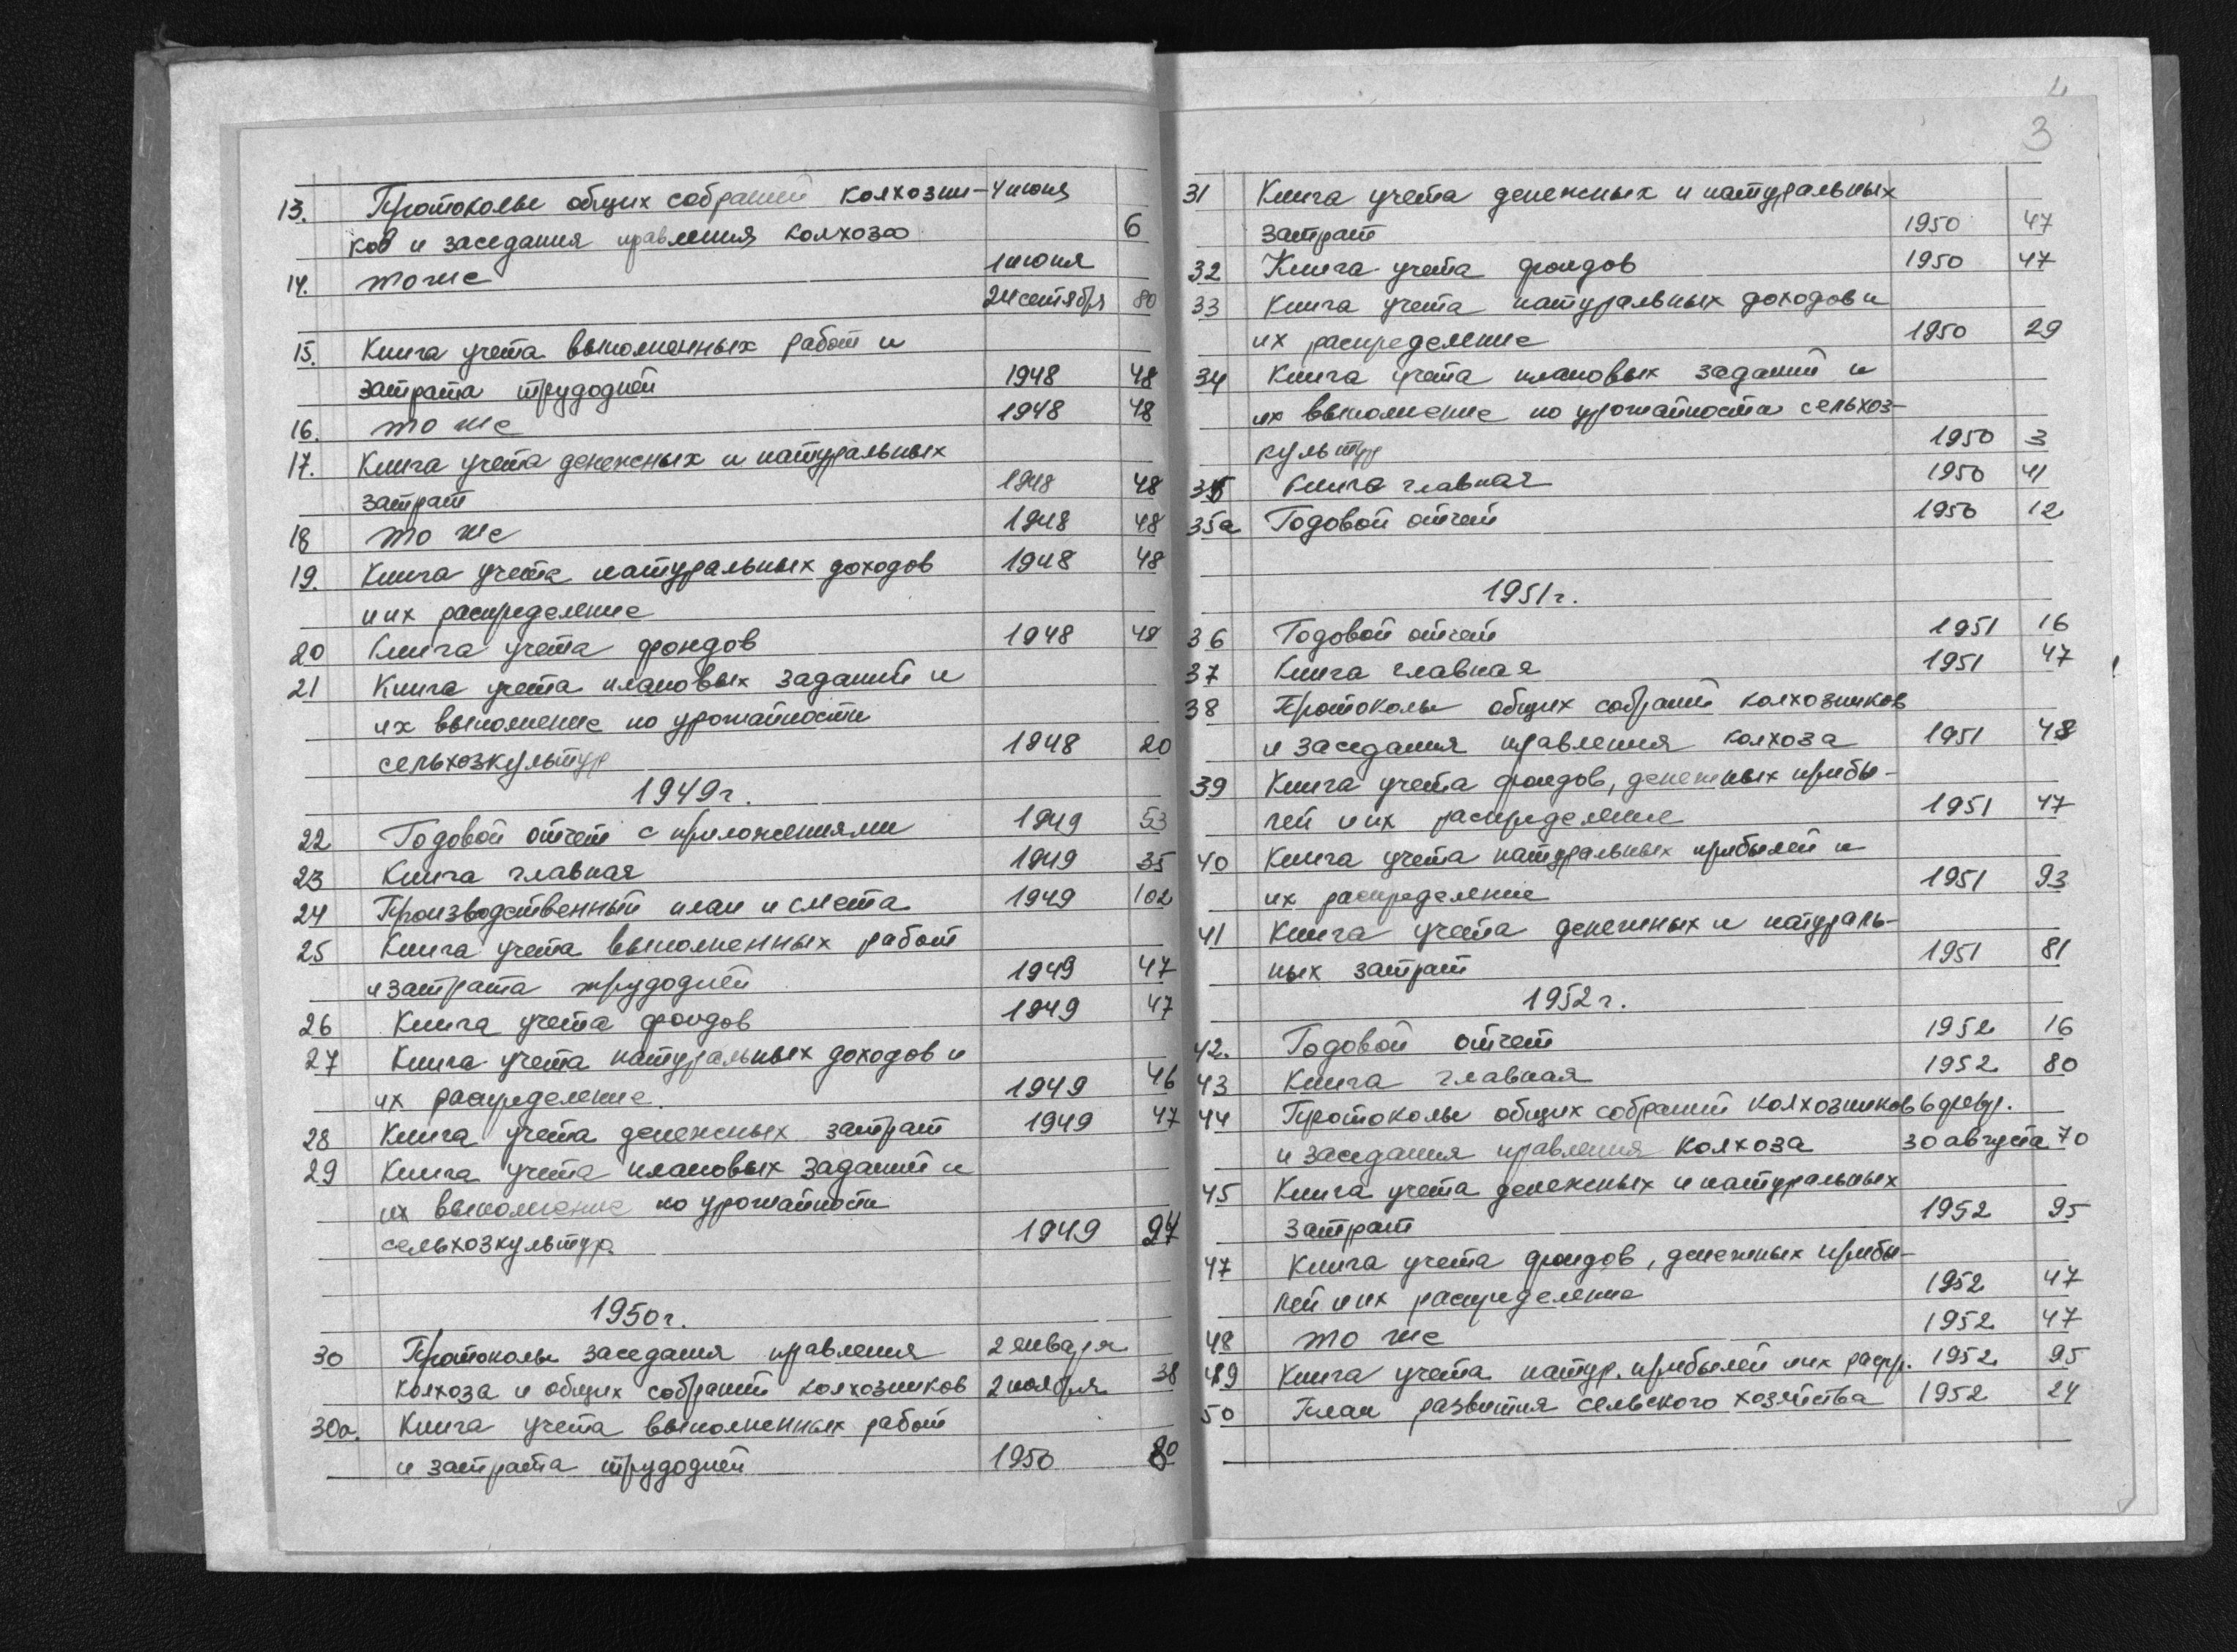 13. Протоколы общих собраний колхозни- 4 июня
ков и заседания правления колхоза 6
14. то же 1 июня
24 сентября 80
15. Книга учета выполненных работ и
затрата трудодней 1948 48
16. то же 1948 48
17. Книга учета денежных и натуральных
затрат 1948 48
18 то же 1948 48
19. Книга учета натуральных доходов 1948 48
и их распределение
20 Книга учета фондов 1948 48
21 Книга учета плановых заданий и
их выполнение по урожайности
сельхозкультур 1948 20
1949г.
22 Годовой отчет с приложениями 1949 53
23 Книга главная 1949 35
24 Производственный план и смета 1949 102
25 Книга учета выполненных работ
и затрата трудодней 1949 47
26 Книга учета фондов 1949 47
27 Книга учета натуральных доходов и
их распределение. 1949 46
28 Книга учета денежных затрат 1949 47
29 Книга учета плановых заданий и
их выполнение по урожайности
сельхозкультур 1949
1950г.
30 Протоколы заседания правления 2 января
колхоза и общих собраний колхозников 2 ноября 38
30а. Книга учета выполненных работ
и затрата трудодней 1950 80
4
3
31 Книга учета денежных и натуральных
затрат 1950 47
32 Книга учета фондов 1950 47
33 Книга учета натуральных доходов и
их распределение 1950 29
34 Книга учета плановых заданий и
их выполнение по урожайности сельхоз-
культур 1950 3
35 Книга главная 1950 41
35а Годовой отчет 1950 12
1951г.
36 Годовой отчет 1951 16
37 Книга главная 1951 47
38 Протоколы общих собраний колхозников
и заседания правления колхоза 1951 48
39 Книга учета фондов, денежных прибы-
лей и их распределение 1951 47
40 Книга учета натуральных прибылей и
их распределение 1951 93
41 Книга учета денежных и натураль-
ных затрат 1951 81
1952г.
42. Годовой отчет 1952 16
43 Книга главная 1952 80
44 Протоколы общих собраний колхозников 6 февр.
и заседания правления колхоза 30 августа 70
45 Книга учета денежных и натуральных
затрат 1952 95
47 Книга учета фондов, денежных прибы-
лей и их распределение 1952 47
48 то же 1952 47
49 Книга учета натур. прибылей и их распр. 1952 95
50 План развития сельского хозяйства 1952 24